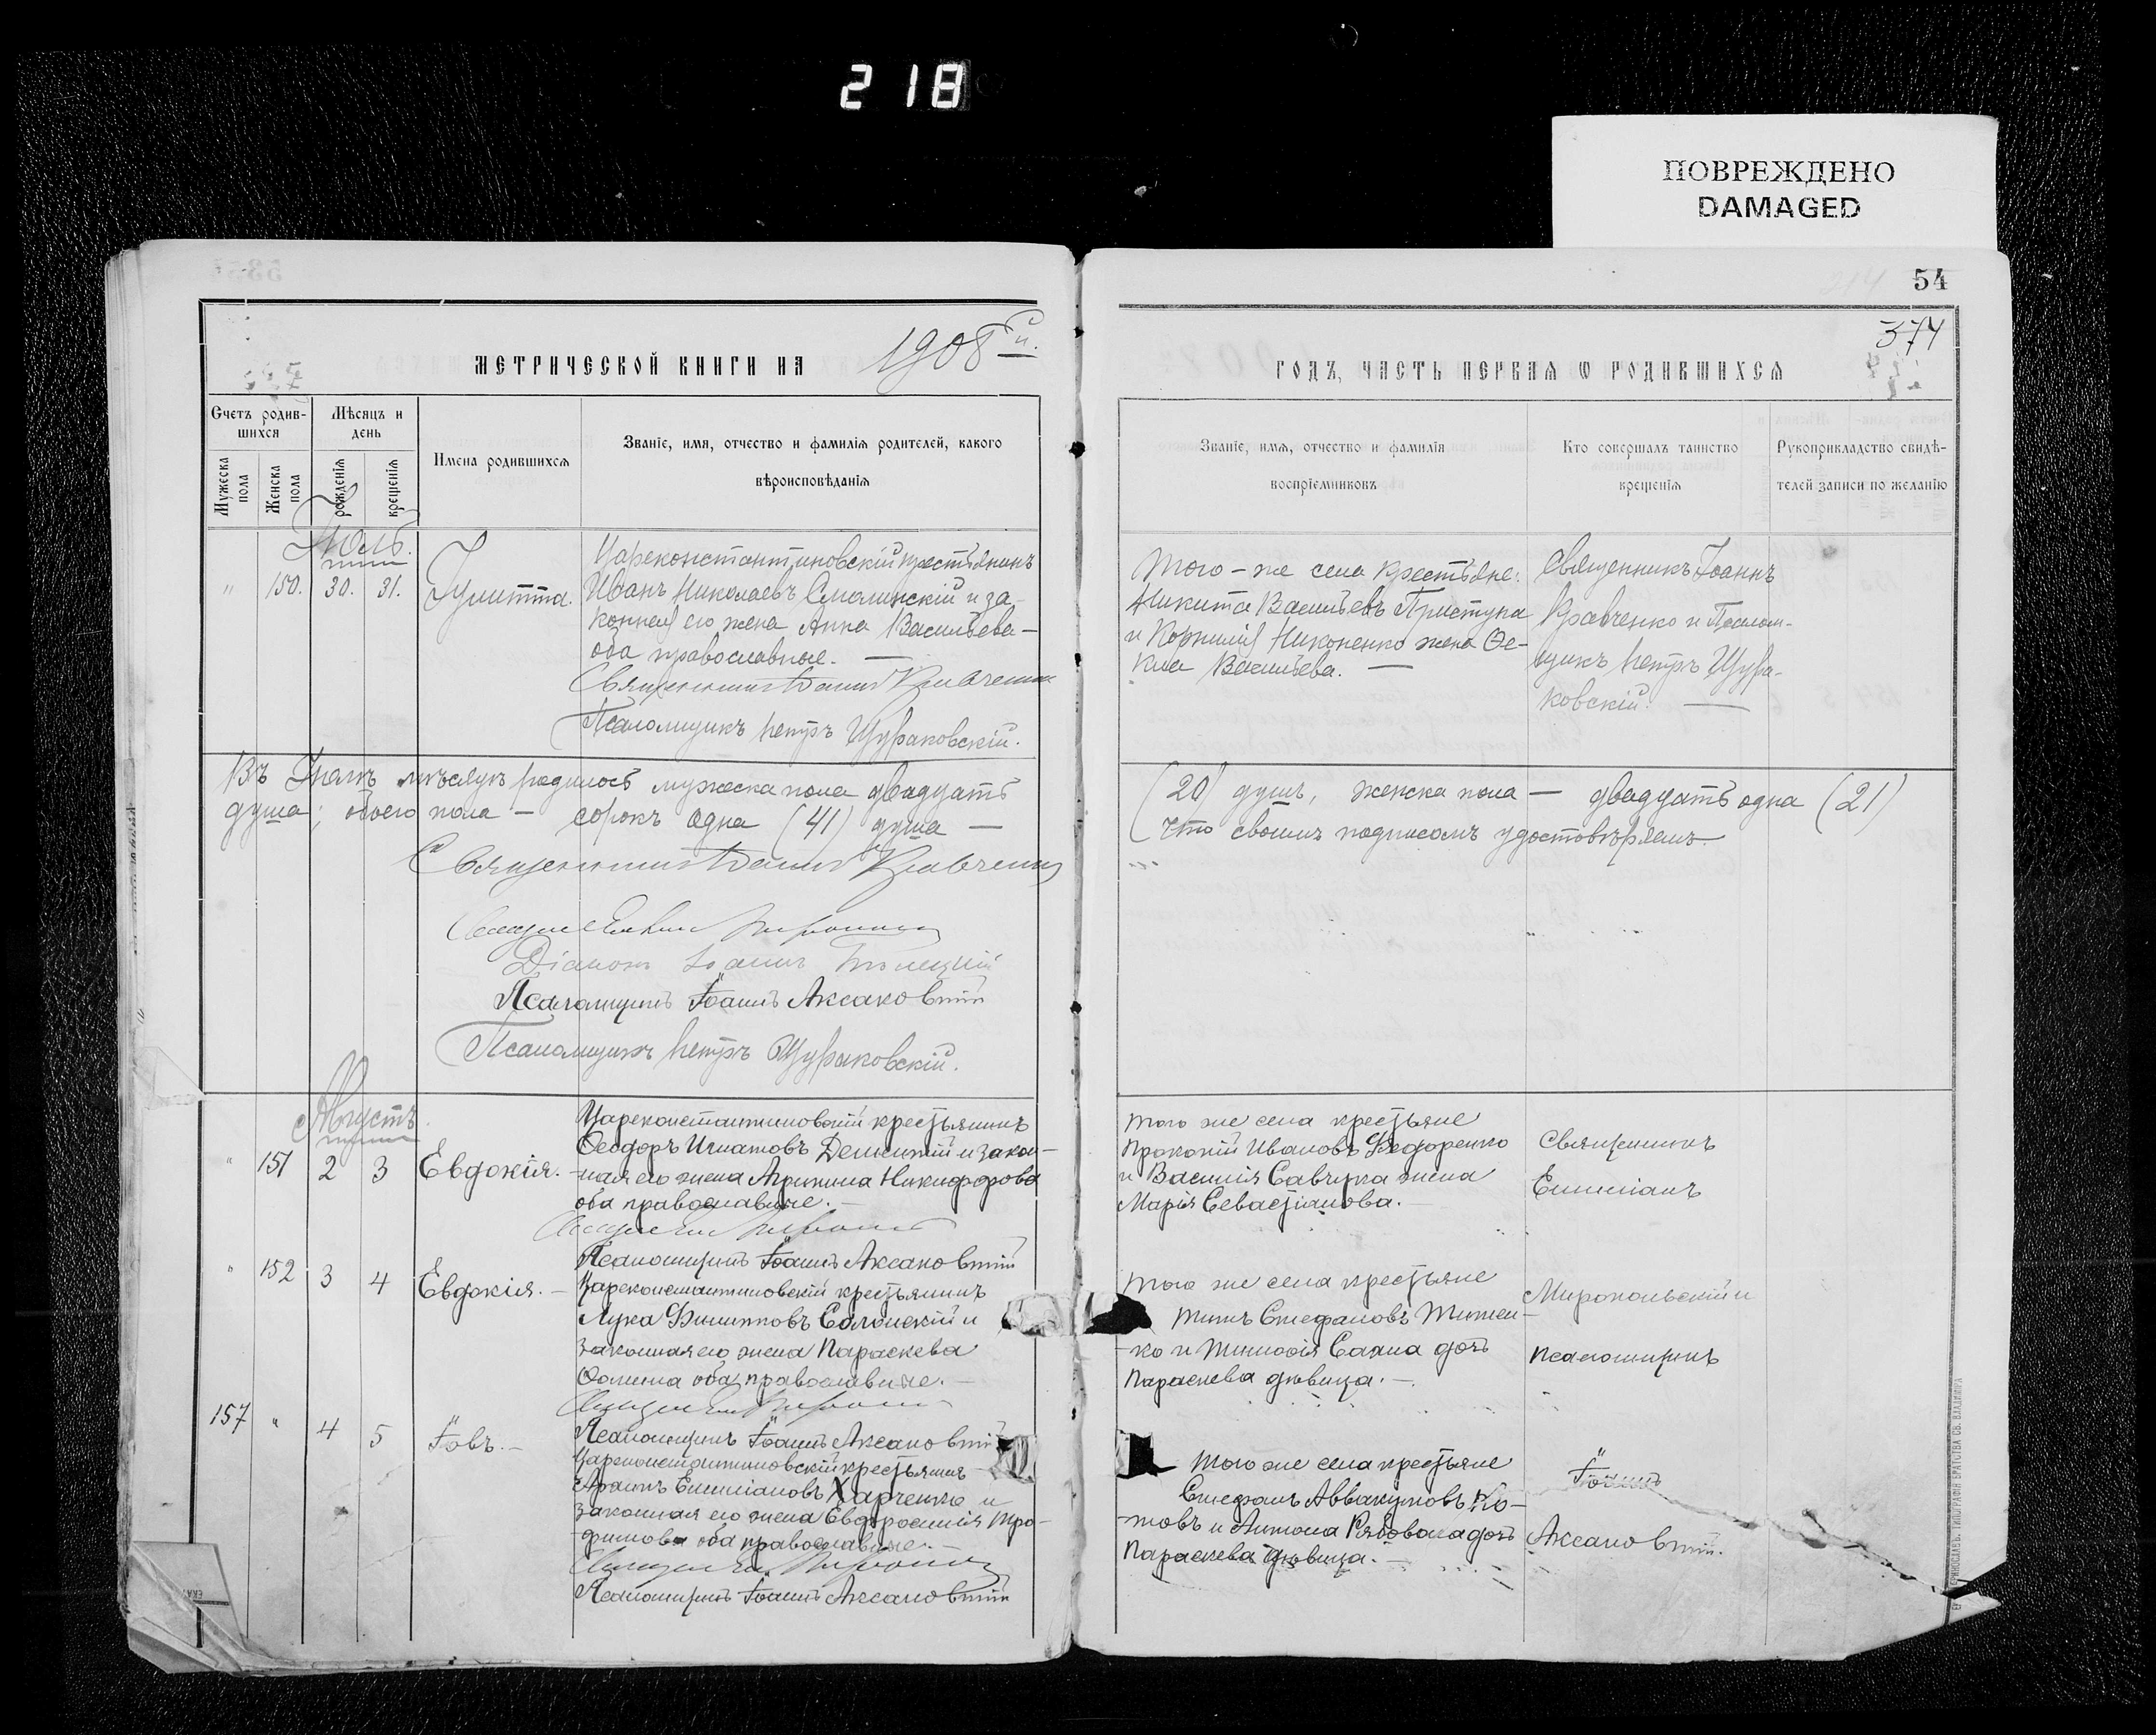 218
ПОВРЕЖДЕНО
DAMAGED
54
374
МЕТРИЧЕСКОЙ КНИГИ НА 1908 й.
ГОДЪ, ЧАСТЬ ПЕРВАЯ Ѡ РОДИВШИХСЯ
Счетъ родив-
шихся
Мужеска пола
Женска пола
Мѣсяцъ и
день
рожденія
крещенія
Имена родившихся
Званіе, имя, отчество и фамилія родителей, какого
вѣроисповѣданія
Званіе, имя, отчество и фамилія
воспріемниковъ
Кто совершалъ таинство
крещенія
Рукоприкладство свидѣ-
телей записи по желанію
Іюль.
" 150. 30. 31. Іулитта.
Цареконстантиновскій крестьянинъ
Иванъ Николаевъ Смолинскій и за-
конная его жена Анна Васильева-
оба православные. —
Священникъ Іоаннъ Кравченко
Псаломщикъ Петръ Щураковскій.
Того-же села крестьяне:
Никита Васильевъ Приступа
и Корнилія Никоненко жена Ѳе-
кла Васильева. —
Священникъ Іоаннъ
Кравченко и Псалом-
щикъ Петръ Щура-
ковскій. —
Въ Іюлѣ мѣсяцѣ родилось мужеска пола двадцать (20) душъ, женска пола — двадцать одна (21)
душа; обоего пола — сорокъ одна (41) душа — Что своимъ подписомъ удостовѣряемъ.
Священникъ Іоаннъ Кравченко
Діаконъ Іоаннъ
Псаломщикъ Іоаннъ Аксаковскій
Псаломщикъ Петръ Щураковскій.
Августъ.
" 151 2 3 Евдокія.
Цареконстантиновскій крестьянинъ
Ѳеодоръ Игнатовъ и закон-
-ная его жена Агрипина Никифорова
оба православные. —
Псаломщикъ Іоаннъ Аксаковскій
Того же села крестьяне
Прокопій Ивановъ Федоренко
и Василія Савчука жена
Марія Севастіанова. —
Священникъ
Емиліанъ
" 152 3 4 Евдокія. —
Цареконстантиновскій крестьянинъ
Лука Филипповъ Солонскій и
законная его жена Параскева
Ѳомина оба православные. —
Псаломщикъ Іоаннъ Аксаковскій
Того же села крестьяне
Титъ Стефановъ Титен-
-ко и Тимоѳія дочь
Параскева дѣвица. —
Миропольскій и
псаломщикъ
157 " 4 5 Іовъ. —
Цареконстантиновскій крестьянинъ
Емиліановъ Харченко и
законная его жена Евфросинія Тро-
фимова оба православные. —
Псаломщикъ Іоаннъ Аксаковскій
Того же села крестьяне
Стефанъ Аввакумовъ
-товъ и Антона Рябовола дочь
Параскева дѣвица. —
Іоаннъ
Аксаковскій.